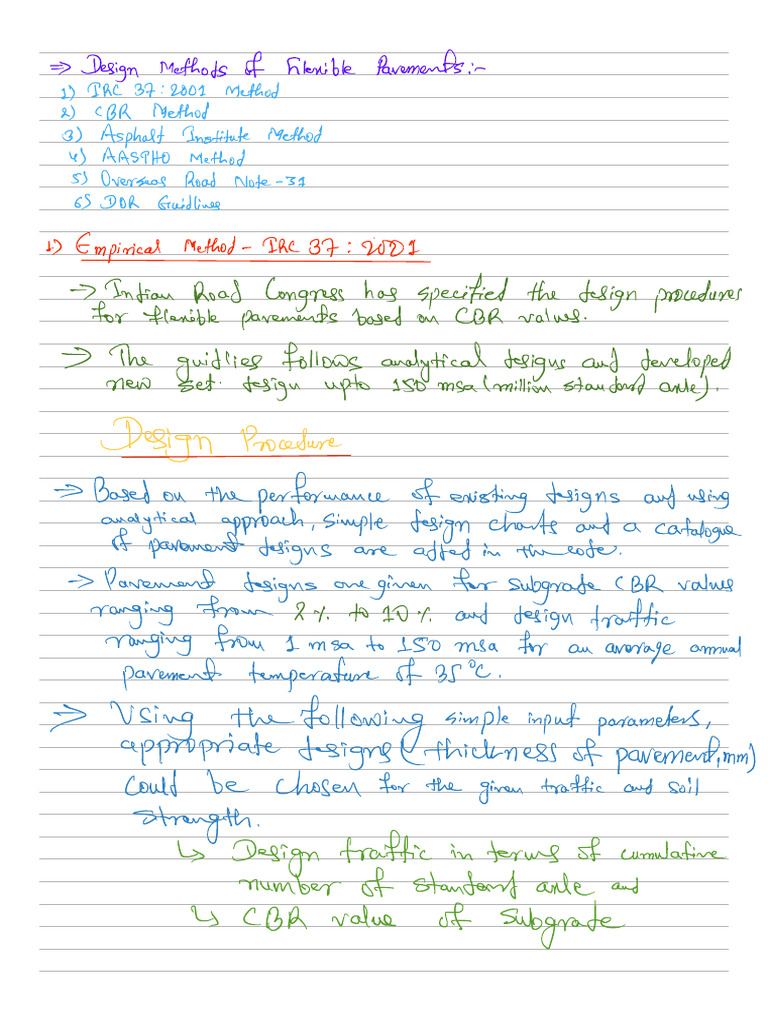 ⇒ Design Methods of Flexible Pavements:-
1) IRC 37:2001 Method
2) CBR Method
3) Asphalt Institute Method
4) AASPHO Method
5) Overseas Road Note-31
6) DOR Guidlines
1) Empirical Method - IRC 37 : 2001
→ Indian Road Congress has specified the design procedures
for flexible pavements based on CBR values.
→ The guidlies follows analytical designs and developed
new set design upto 150 msa (million standard axle).
Design Procedure
→ Based on the performance of existing designs and using
analytical approach, simple design charts and a catalogue
of pavement designs are added in the code.
→ Pavement designs are given for subgrade CBR values
ranging from 2% to 10% and design traffic
ranging from 1 msa to 150 msa for an average annual
pavement temperature of 35°C.
⇒ Using the following simple input parameters,
appropriate designs (thickness of pavement, mm)
could be chosen for the given traffic and soil
strength.
↳ Design traffic in terms of cumulative
number of standard axle and
↳ CBR value of subgrade